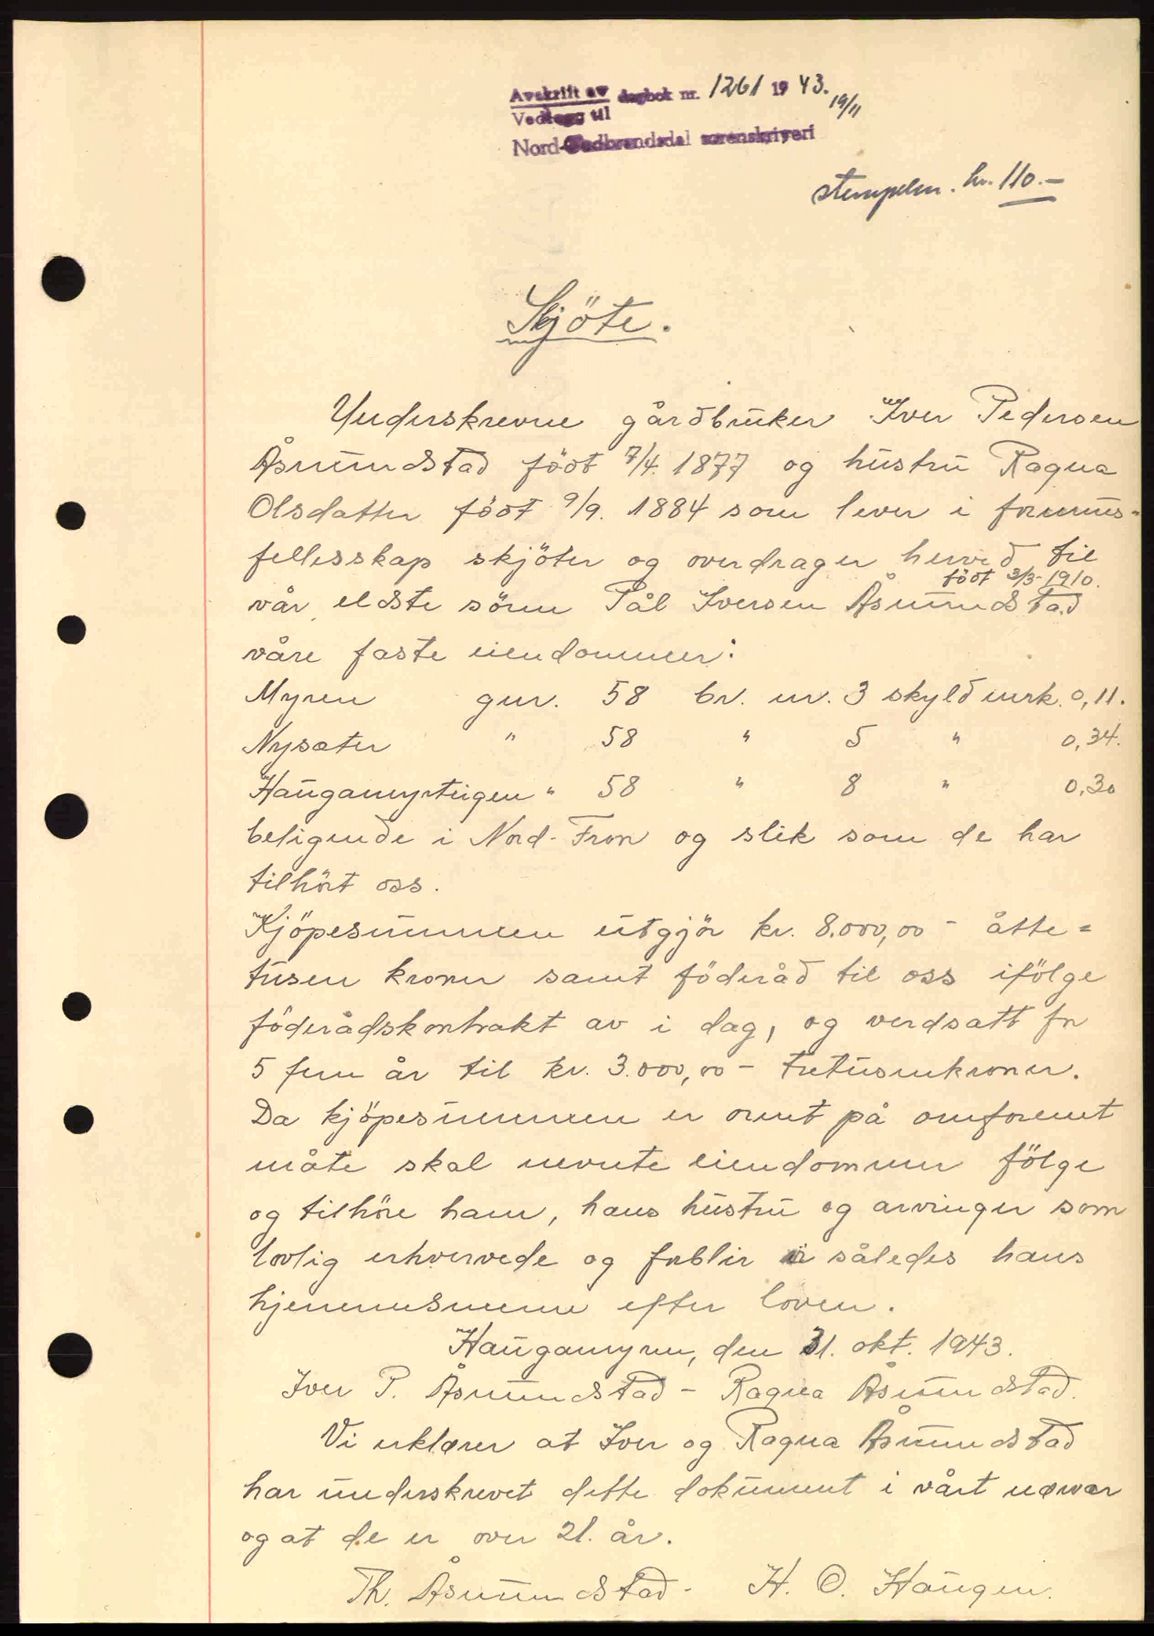 Avskrift av dagbok nr. 1261 1943.
Vedlegg til 19/11
Nord-Gudbrandsdal sorenskriveri
stempelm. kr. 110.-
Skjöte.
Underskrevne gårdbruker Iver Pedersen
Åsmundstad född 7/4. 1877 og hustru Ragna
Olsdatter född 9/9. 1884 som lever i formues-
fellesskap skjöter og overdrager herved til
född 3/3-1910.
vår eldste sönn Pål Iversen Åsmundstad
våre faste eiendommer:
Myren gnr. 58 br. nr. 3 skyld mrk. 0,11.
Nysæter " 58 " 5 " 0,34.
Haugamyrteigen " 58 " 8 " 0,30
beligende i Nord-Fron og slik som de har
tilhört oss.
Kjöpesummen utgjör kr. 8.000,00 - åtte=
tusen kroner samt föderåd til oss ifölge
föderådskontrakt av i dag, og verdsatt for
5 fem år til kr. 3.000,00 - tretusenkroner.
Da kjöpesummen er ornet på omforenet
måte skal nevnte eiendommer fölge
og tilhöre ham, hans hustru og arvinger som
lovlig erhvervede og forblir således hans
hjemmelsmenn efter loven.
Haugamyren, den 31. okt. 1943.
Iver P. Åsmundstad - Ragna Åsmundstad.
Vi erklærer at Iver og Ragna Åsmundstad
har underskrevet dette dokument i vårt nærvær
og at de er over 21. år.
Th. Åsmundstad - H. O. Haugen.